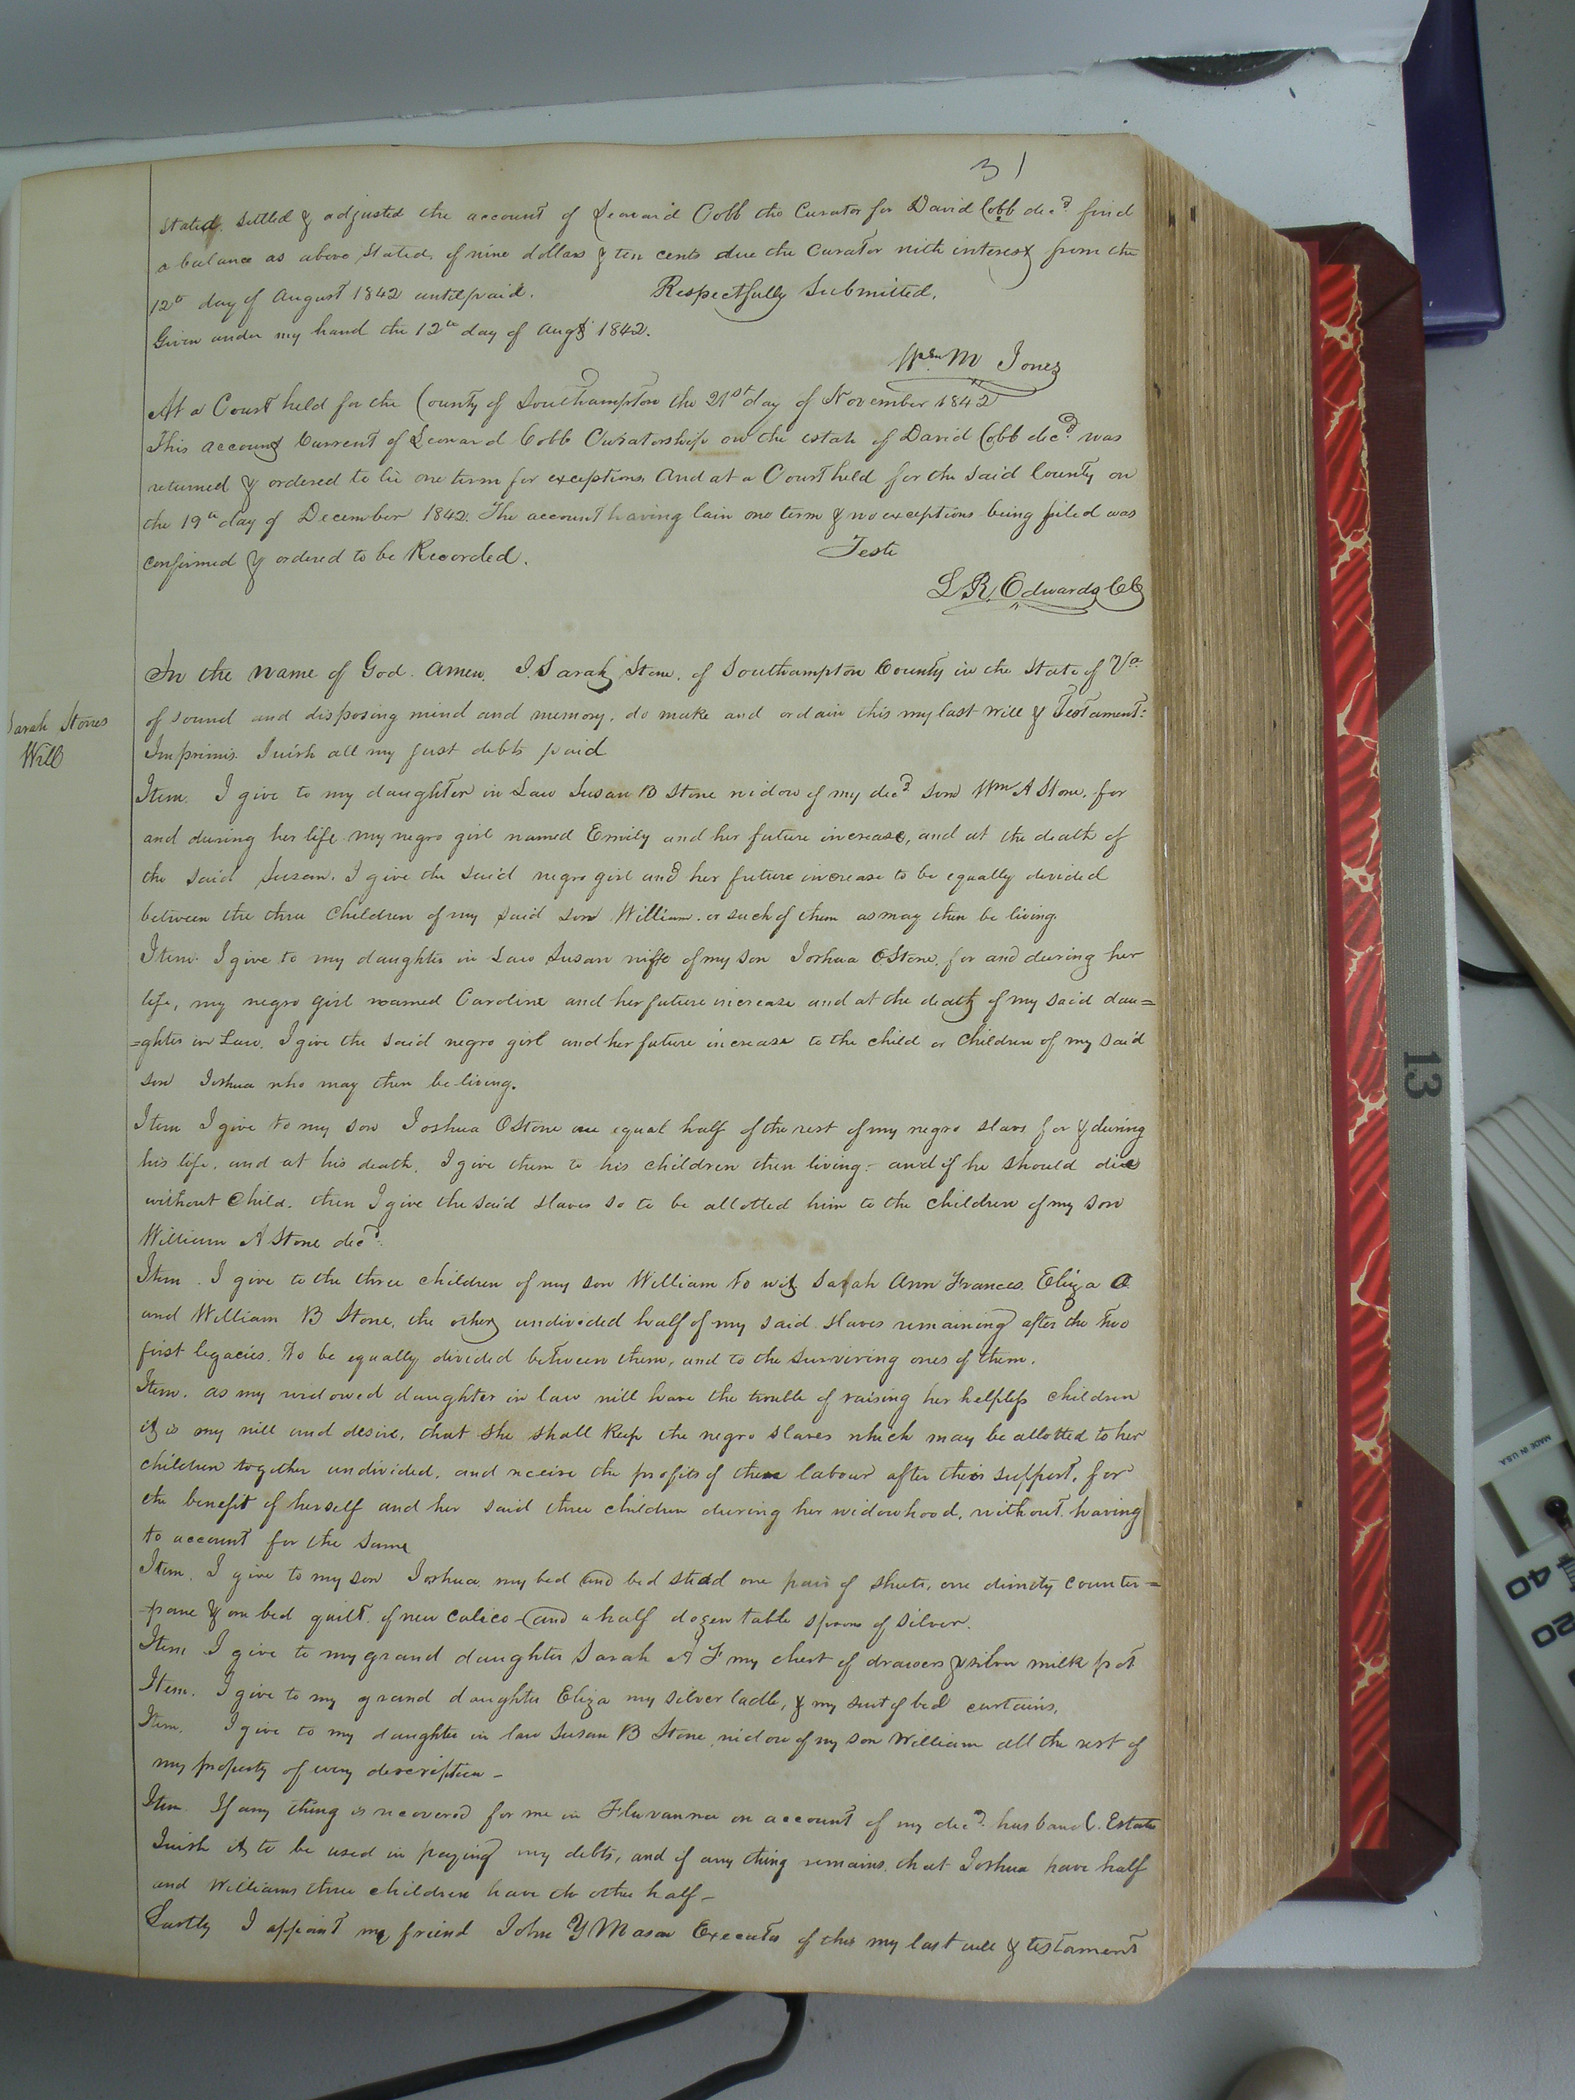 31
Stated, settled & adjusted the account of Leonard Cobb the Curator for David Cobb decd find
a balance as above stated, of nine dollars & ten cents due the Curator with interest from the
12th day of August 1842 until paid. Respectfully Submitted,
Given under my hand the 12th day of Augt 1842.
Wm M Jones
At a Court held for the County of Southampton the 21st day of November 1842
This account Current of Leonard Cobb Curatorship on the estate of David Cobb decd was
returned & ordered to lie one term for exceptions And at a Court held for the said County on
the 19th day of December 1842. The account having lain one term & no exceptions being filed was
confirmed & ordered to be Recorded. Teste
L R. Edwards CC
In the name of God. Amen. I. Sarah Stone, of Southampton County in the State of Va
Sarah Stones
Will
of sound and disposing mind and memory, do make and ordain this my last will & Testament:
Imprimis. I wish all my just debts paid
Item. I give to my daughter in Law Susan B Stone widow of my decd son Wm A Stone, for
and during her life my negro girl named Emily and her future increase, and at the death of
the said Susan, I give the said negro girl and her future increase to be equally divided
between the three Children of my said son William. or such of them as may then be living.
Item. I give to my daughter in Law Susan wife of my son Joshua O Stone, for and during her
life, my negro girl named Caroline and her future increase and at the death of my said dau=
=ghter in Law, I give the said negro girl and her future increase to the child or Children of my said
son Joshua who may then be living.
Item I give to my son Joshua O Stone one equal half of the rest of my negro slaves for & during
his life, and at his death, I give them to his children then living:- and if he should die
without Child. then I give the said slaves so to be allotted him to the children of my son
William A Stone decd.
Item. I give to the three children of my son William to wit Sarah Ann Frances, Eliza A
and William B Stone, the other undivided half of my said slaves remaining after the two
first legacies. to be equally divided between them, and to the surviving ones of them.
Item. as my widowed daughter in law will have the trouble of raising her helpless children
it is my will and desire, that she shall keep the negro slaves which may be allotted to her
children together undivided, and receive the profits of their labour after their support, for
the benefit of herself and her said three children during her widowhood, without having
to account for the same
Item. I give to my son Joshua my bed and bed stead one pair of sheets, one dimity counter=
-pane & one bed quilt of new calico - and a half dozen table spoons of silver.
Item I give to my grand daughter Sarah A F my chest of drawers & silver milk pot
Item. I give to my grand daughter Eliza my silver ladle, & my suit of bed curtains,
Item. I give to my daughter in law Susan B Stone, widow of my son William all the rest of
my property of every description -
Item. If any thing is recovered for me in Fluvanna on account of my decd. husband. Estate
I wish it to be used in paying my debts, and if any thing remains, that Joshua have half
and Williams three children have the other half -
Lastly I appoint my friend John Y Mason Executor of this my last will & testament
13
MADE IN USA
40
20